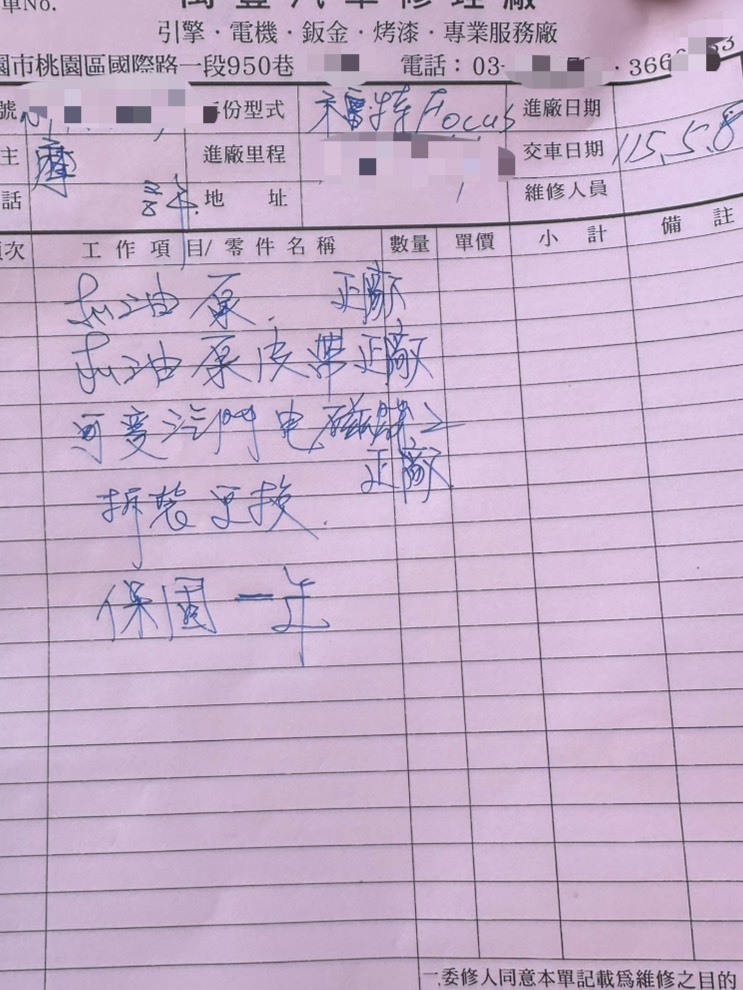 單No.
萬豐汽車修理廠
引擎·電機·鈑金·烤漆·專業服務廠
園市桃園區國際路一段950巷 電話：03- · 366
號 年份型式 福特 Focus 進廠日期
主 摩 進廠里程 交車日期 115.5.8
話 地址 維修人員
項次 工作項目/零件名稱 數量 單價 小計 備註
加油泵. 正廠
加油泵皮帶正廠
可變汽門電磁閥2
正廠
拆裝更換.
保固一年
一、委修人同意本單記載為維修之目的